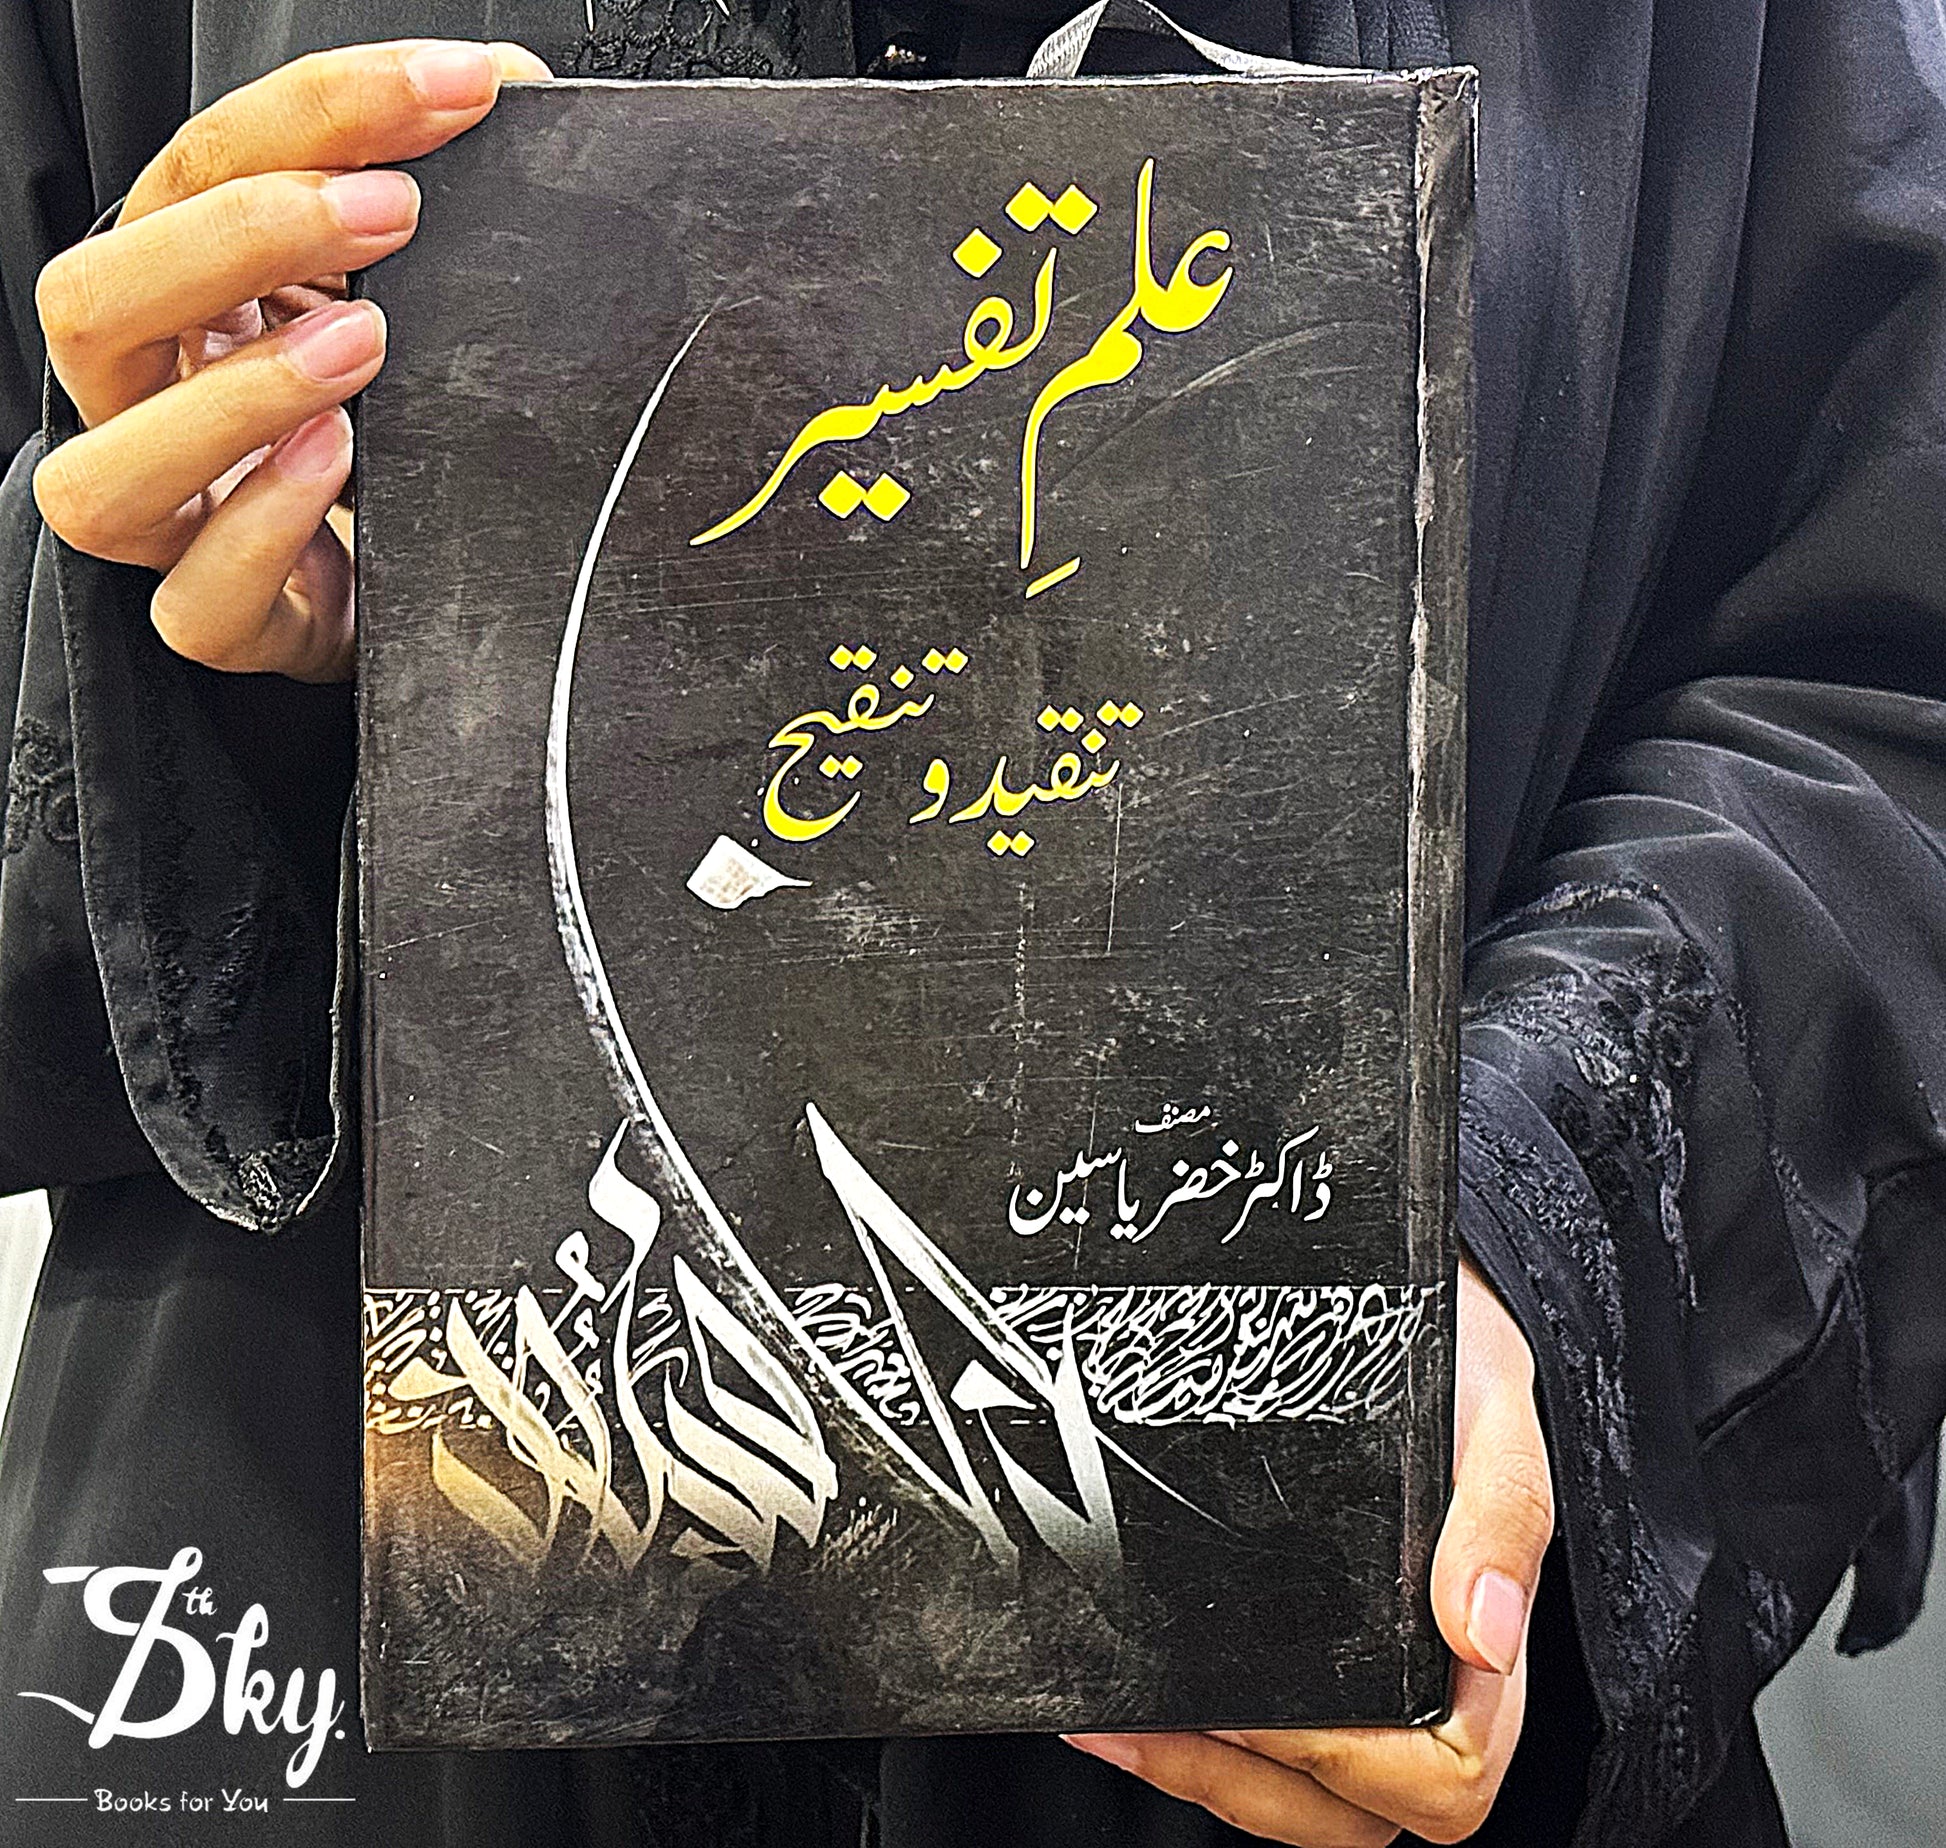 علمِ تفسیر
تنقید و تنقیح
مصنف
ڈاکٹر خضر یاسین
7th Sky.
Books for You